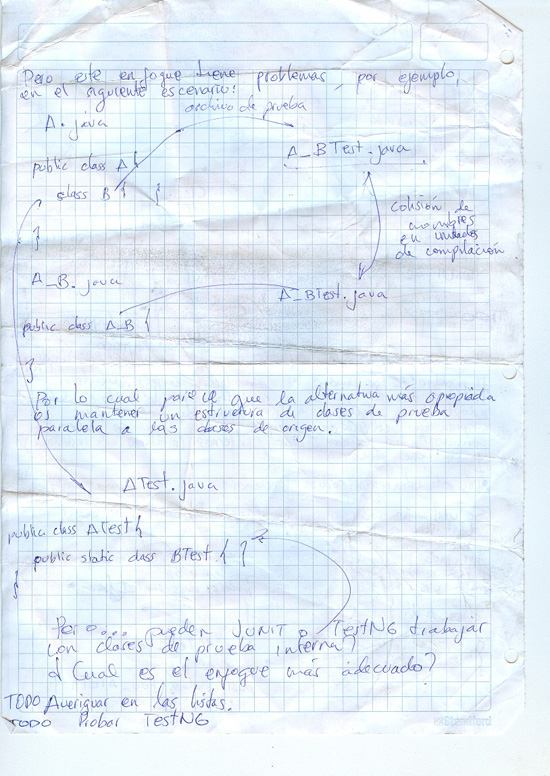 Pero este enfoque tiene problemas, por ejemplo,
en el siguiente escenario:
archivo de prueba
A.java
A_BTest.java
public class A {
class B { }
}
Colisión de
nombres
en unidades
de compilación
A_B.java
A_BTest.java
public class A_B {
}
Por lo cual parece que la alternativa más apropiada
es mantener un estructura de clases de prueba
paralela a las clases de origen.
ATest.java
public class ATest {
public static class BTest { }
}
Pero... pueden JUNIT o TestNG trabajar
con clases de prueba interna?
¿Cual es el enfoque más adecuado?
TODO Averiguar en las listas.
TODO Probar TestNG